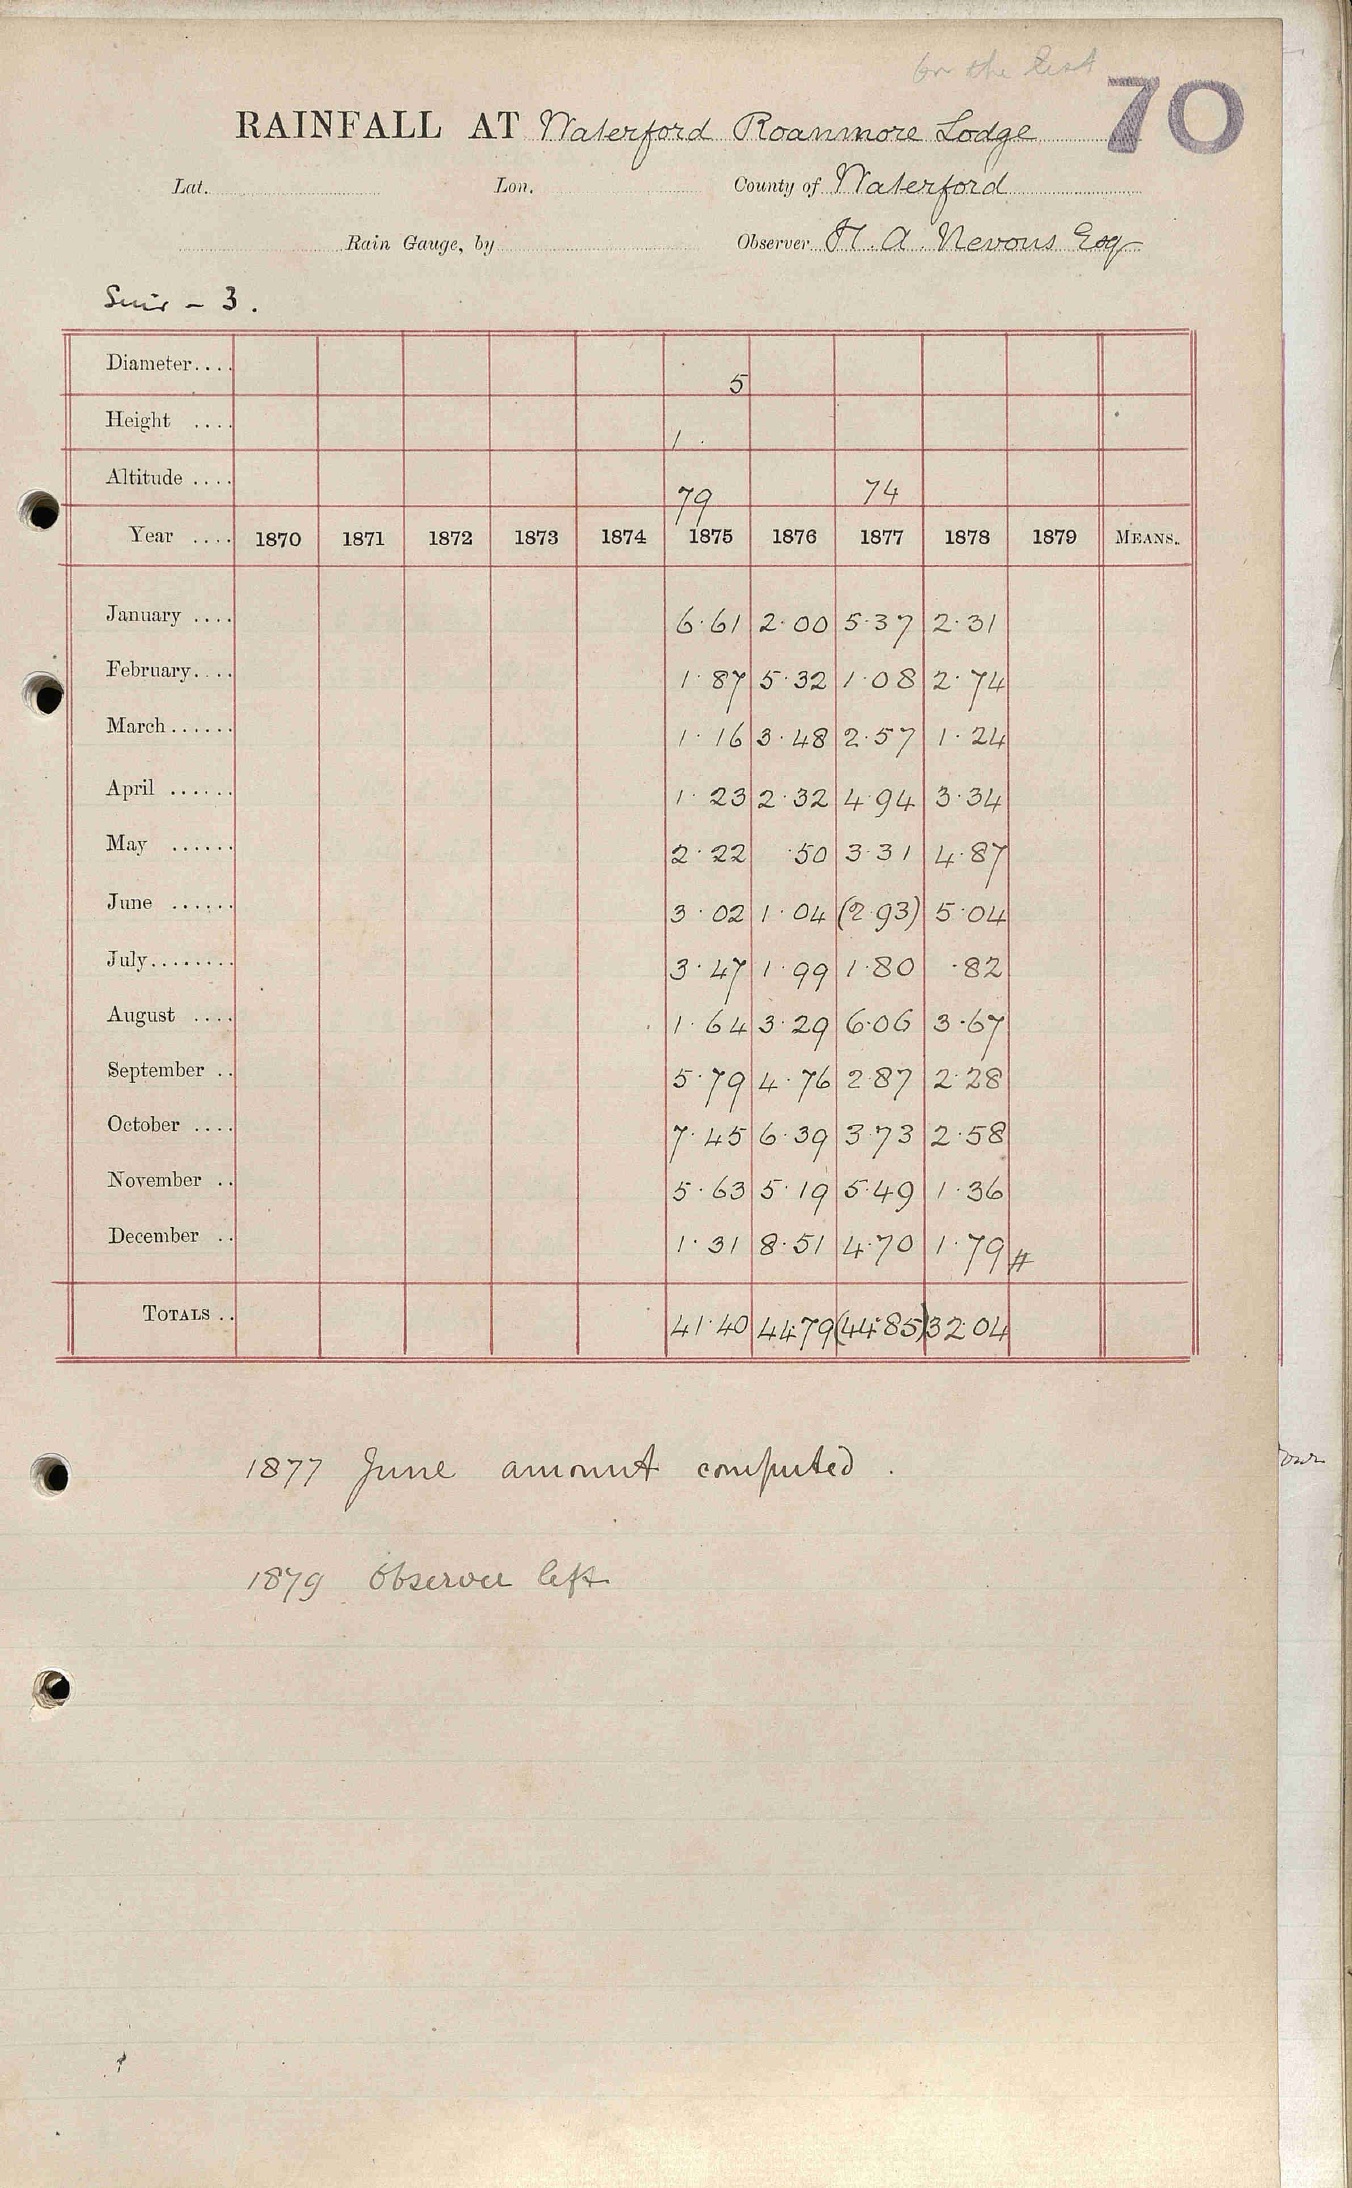 70
RAINFALL AT Waterford Roanmore Lodge
Lat. Lon. County of Waterford
Rain Gauge, by Observer H. A. Nevons Esq
Suir - 3.
Diameter.... 5
Height .... 1
Altitude .... 79 74
Year .... 1870 1871 1872 1873 1874 1875 1876 1877 1878 1879 MEANS.
January .... 6.61 2.00 5.37 2.31
February.... 1.87 5.32 1.08 2.74
March...... 1.16 3.48 2.57 1.24
April ...... 1.23 2.32 4.94 3.34
May ...... 2.22 .50 3.31 4.87
June ...... 3.02 1.04 (2.93) 5.04
July........ 3.47 1.99 1.80 .82
August .... 1.64 3.29 6.06 3.67
September .. 5.79 4.76 2.87 2.28
October .... 7.45 6.39 3.73 2.58
November .. 5.63 5.19 5.49 1.36
December .. 1.31 8.51 4.70 1.79 #
TOTALS .. 41.40 44.79 (44.85) 32.04
1877 June amount computed.
1879 Observer left